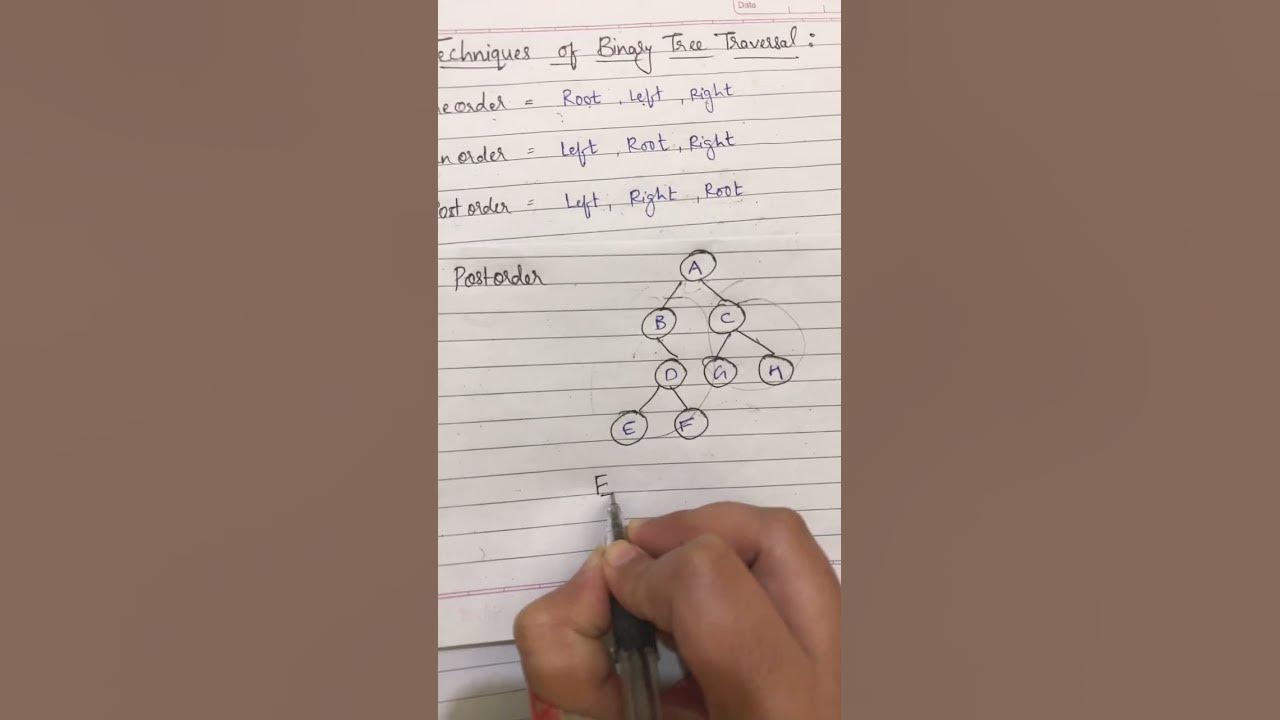 Date
Techniques of Binary Tree Traversal:
reorder = Root, Left, Right
n order = Left, Root, Right
Post order = Left, Right, Root
Postorder
A
B C
D G H
E F
E